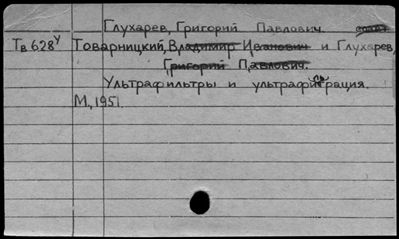 Глухарев, Григорий Павлович.
Тв 628у Товарницкий, Владимир Иванович и Глухарев,
Григорий Павлович.
Ультрафильтры и ультрафильтрация.
М., 1951.